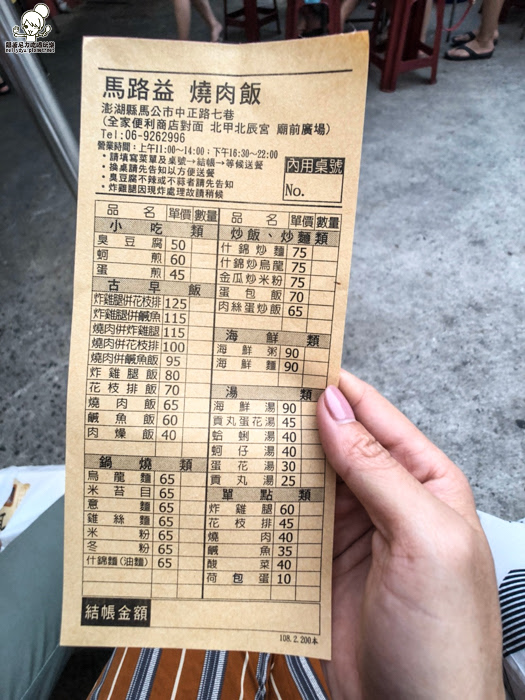 跟著尼力吃喝玩樂
nellydyu.pixnet.net
馬路益 燒肉飯
澎湖縣馬公市中正路七巷
(全家便利商店對面 北甲北辰宮 廟前廣場)
Tel:06-9262996
營業時間：上午11:00~14:00；下午16:30~22:00
・請填寫菜單及桌號→結帳→等候送餐
・換桌請先告知以方便送餐
・臭豆腐不辣或不蒜者請先告知
・炸雞腿因現炸處理故請稍候
內用桌號
No.
品名 單價 數量
小吃類
臭豆腐 50
蚵煎 60
蛋煎 45
古早飯
炸雞腿併花枝排 125
炸雞腿併鹹魚 115
燒肉併炸雞腿 115
燒肉併花枝排 100
燒肉併鹹魚飯 95
炸雞腿飯 80
花枝排飯 70
燒肉飯 65
鹹魚飯 60
肉燥飯 40
鍋燒類
烏龍麵 65
米苔目 65
意麵 65
雞絲麵 65
米粉 65
冬粉 65
什錦麵(油麵) 65
品名 單價 數量
炒飯、炒麵類
什錦炒麵 75
什錦炒烏龍 75
金瓜炒米粉 75
蛋包飯 70
肉絲蛋炒飯 65
海鮮類
海鮮粥 90
海鮮麵 90
湯類
海鮮湯 90
貢丸蛋花湯 45
蛤蜊湯 40
蚵仔湯 40
蛋花湯 30
貢丸湯 25
單點類
炸雞腿 60
花枝排 45
燒肉 40
鹹魚 35
酸菜 40
荷包蛋 10
結帳金額
108.2.200本